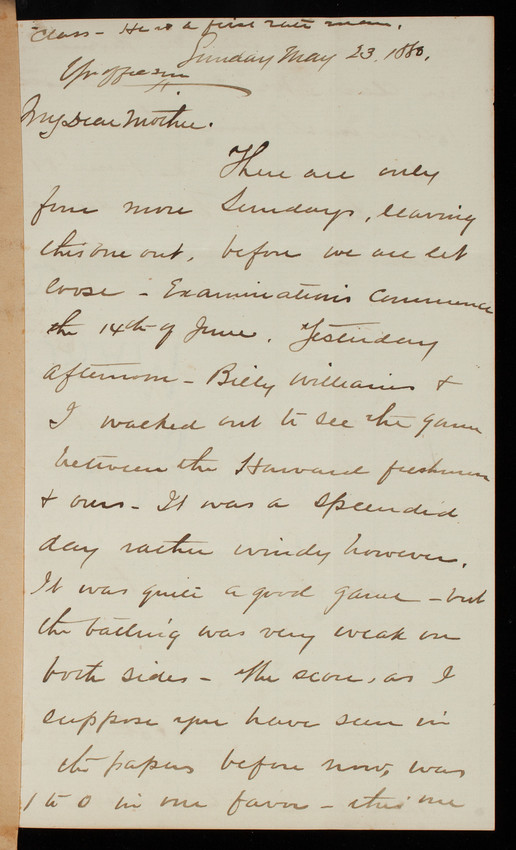 class - He is a first rate man.
Sunday May 23, 1880.
My Dear Mother.
There are only
four more Sundays, leaving
this one out, before we are let
loose - Examinations commence
the 14th of June. Yesterday
afternoon - Billy Williams &
I walked out to see the game
between the Harvard freshmen
& ours - It was a splendid
day rather windy however.
It was quite a good game - but
the batting was very weak on
both sides - the score, as I
suppose you have seen in
the papers before now, was
1 to 0 in our favor - this one